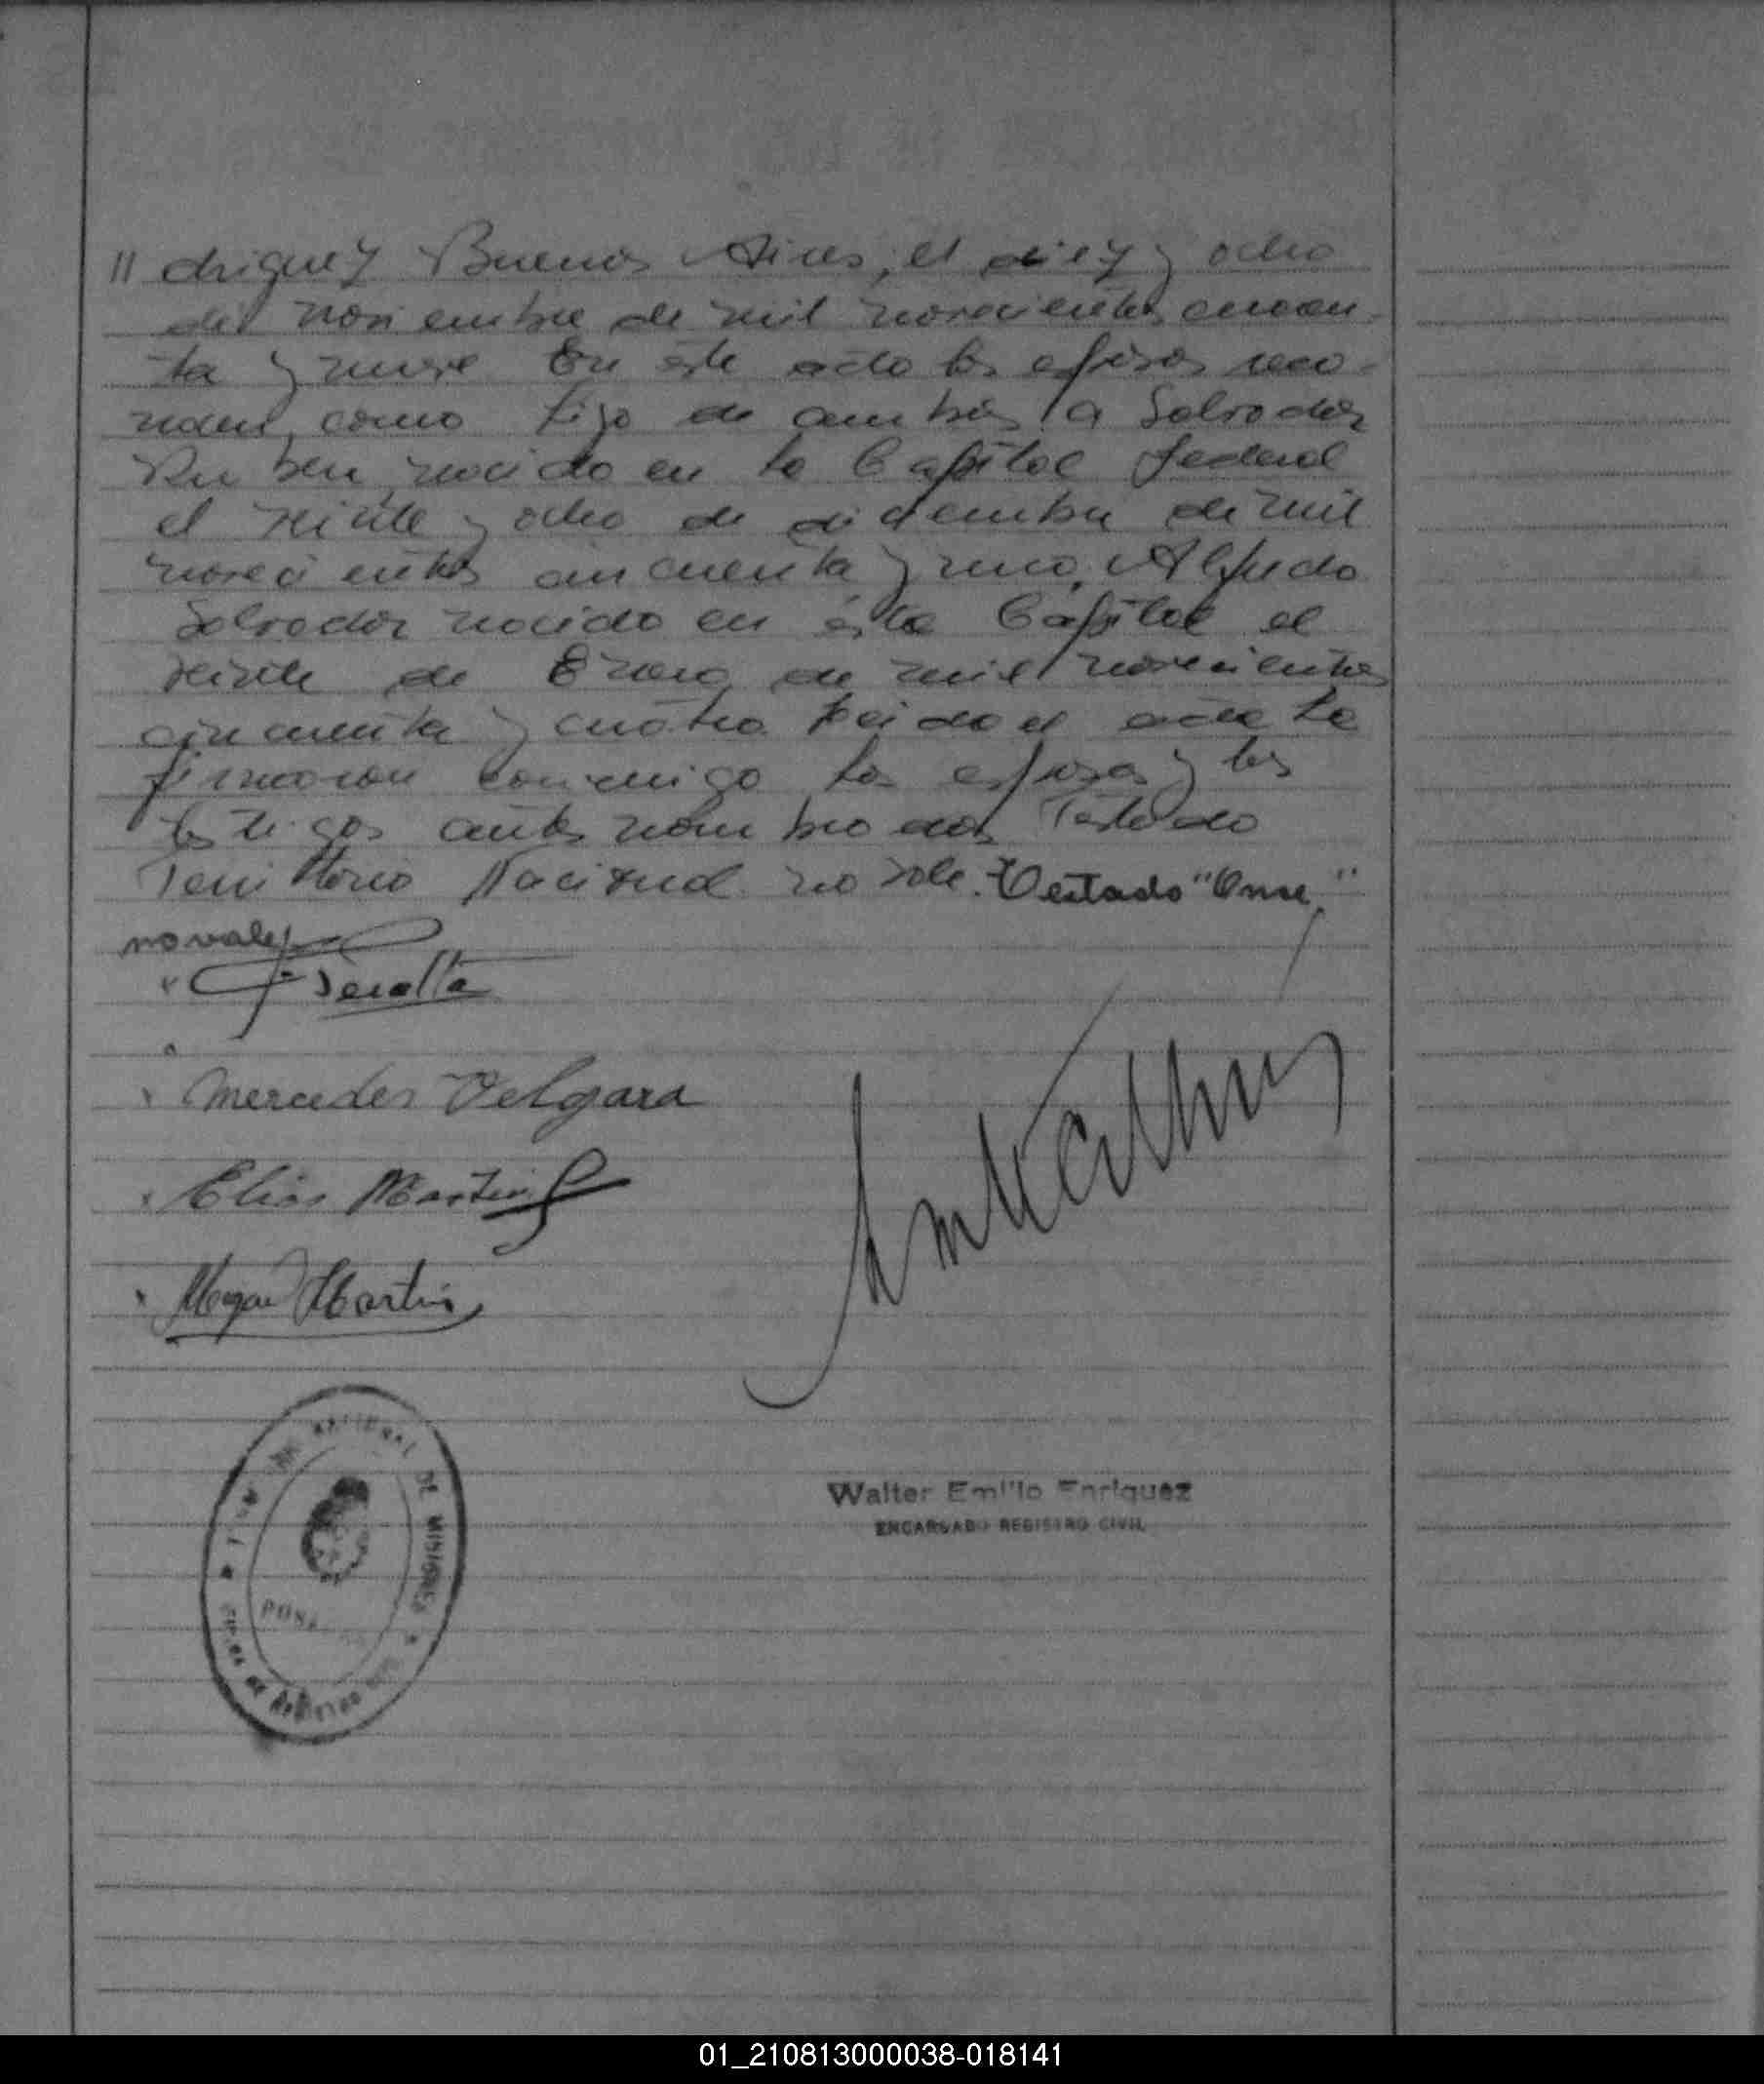 // driguez Buenos Aires, el diez y ocho
de noviembre de mil novecientos cincuen-
ta y nueve En este acto los esposos reco-
nocen como hijo de ambos a Salvador
Ruben, nacido en la Capital Federal
el veinte y ocho de diciembre de mil
novecientos cincuenta y uno, Alfredo
Salvador nacido en ésta Capital el
veinte de Enero de mil novecientos
cincuenta y cuatro. Leido el acta la
firmaron conmigo los esposos y los
testigos antes nombrados Testado
Territorio Nacional no vale. Testado "Once"
no vale
Peralta
Mercedes Delgara
Elias Martin
Martin
NACIONAL DE MISIONES
Walter Emilio Enriquez
ENCARGADO REGISTRO CIVIL
01_210813000038-018141